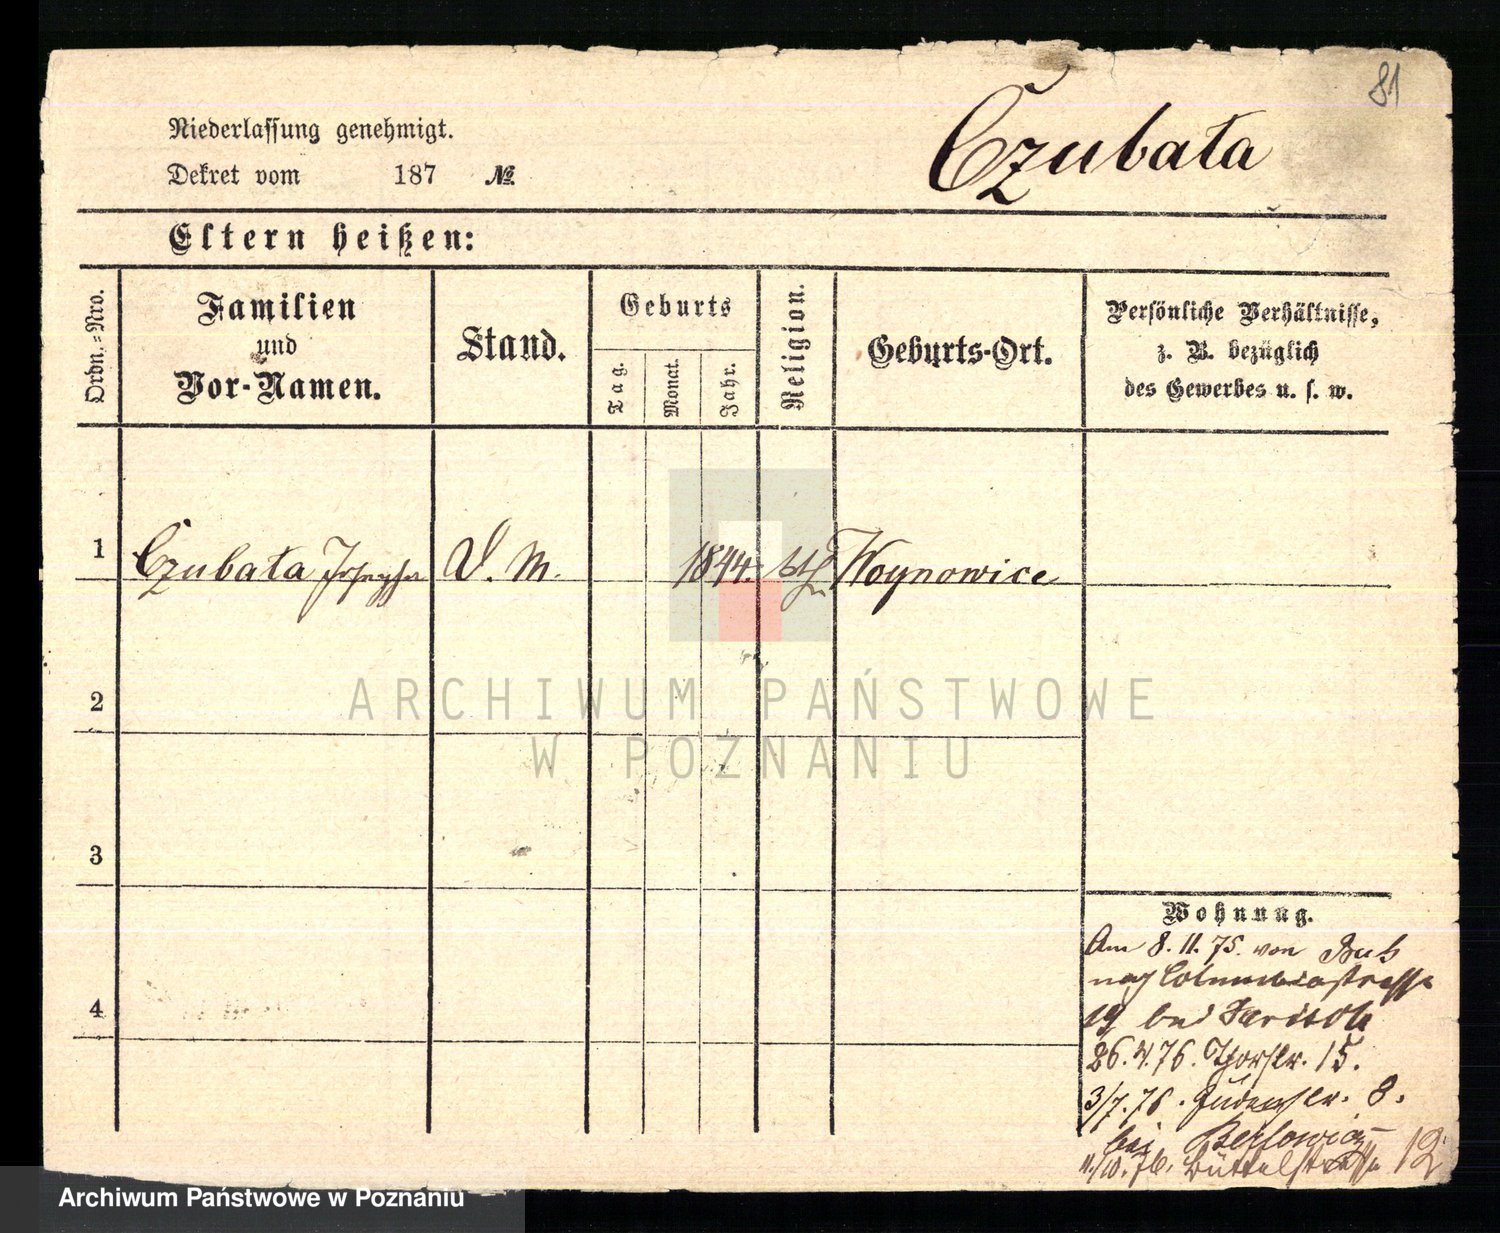 81
Czubata
Niederlassung genehmigt.
Dekret vom 187 №
Eltern heißen:
Ordn.-Nro.
Familien
und
Vor-Namen.
Stand.
Geburts
Tag.
Monat.
Jahr.
Religion.
Geburts-Ort.
Persönliche Verhältnisse,
z. B. bezüglich
des Gewerbes u. s. w.
1 Czubata Josepha D. M. 1844. kth Woynowice
2
3
4
Wohnung.
Am 8.11.75. von Buk
nach Columbiastrasse
19 bei
26.4.76. Thorstr. 15.
3/7.76. Judenstr. 8.
bei
11/10.76. Büttelstrasse 12
ARCHIWUM PAŃSTWOWE
W POZNANIU
Archiwum Państwowe w Poznaniu